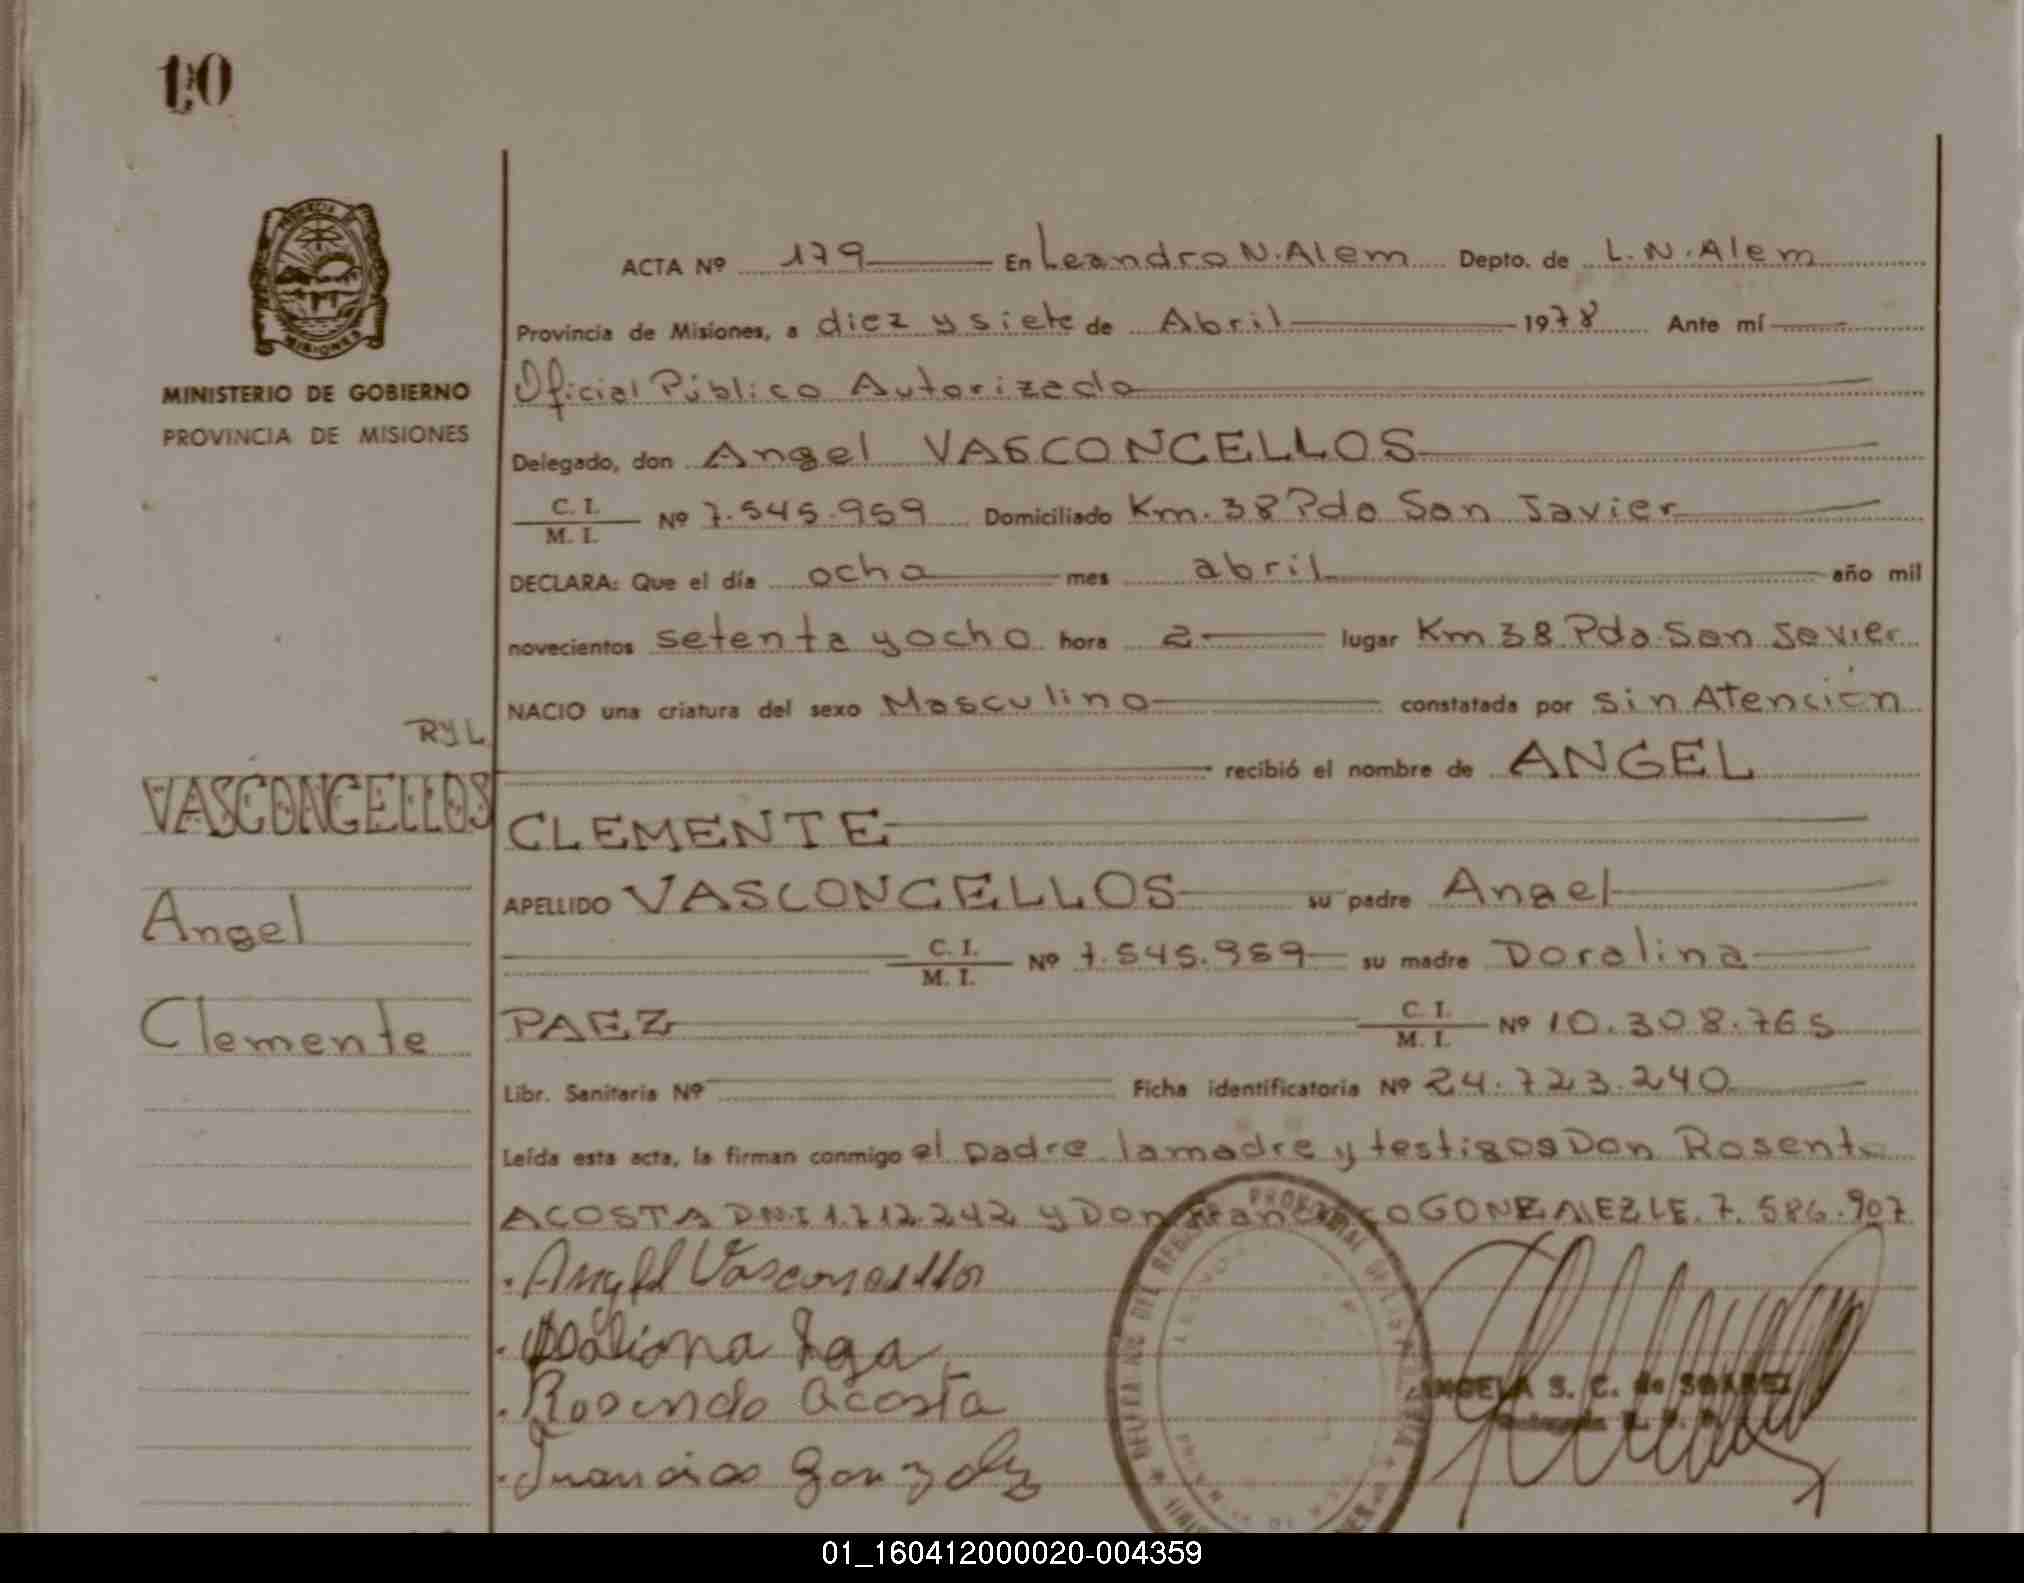 10
MINISTERIO DE GOBIERNO
PROVINCIA DE MISIONES
MISIONES
RyL
VASCONCELLOS
Angel
Clemente
ACTA Nº 179 En Leandro N. Alem Depto. de L. N. Alem
Provincia de Misiones, a diez y siete de Abril 1978 Ante mí
Oficial Público Autorizado
Delegado, don Angel VASCONCELLOS
C. I.
M. I. Nº 7.545.959 Domiciliado Km. 38 Pdo San Javier
DECLARA: Que el día ocho mes abril año mil
novecientos setenta y ocho hora 2 lugar Km 38 Pdo San Javier
NACIO una criatura del sexo Masculino constatada por sin Atención
recibió el nombre de ANGEL
CLEMENTE
APELLIDO VASCONCELLOS su padre Angel
C. I.
M. I. Nº 7.545.959 su madre Doralina
PAEZ C. I.
M. I. Nº 10.308.765
Libr. Sanitaria Nº Ficha identificatoria Nº 24.723.240
Leída esta acta, la firman conmigo el padre la madre y testigos Don Rosento
ACOSTA DNI 1.712.242 y Don GONZALEZ LE. 7.586.907
Angel Vasconcellos
Rosendo Acosta
Francisco Gonzalez
ANGELA S. C. de SUAREZ
01_160412000020-004359